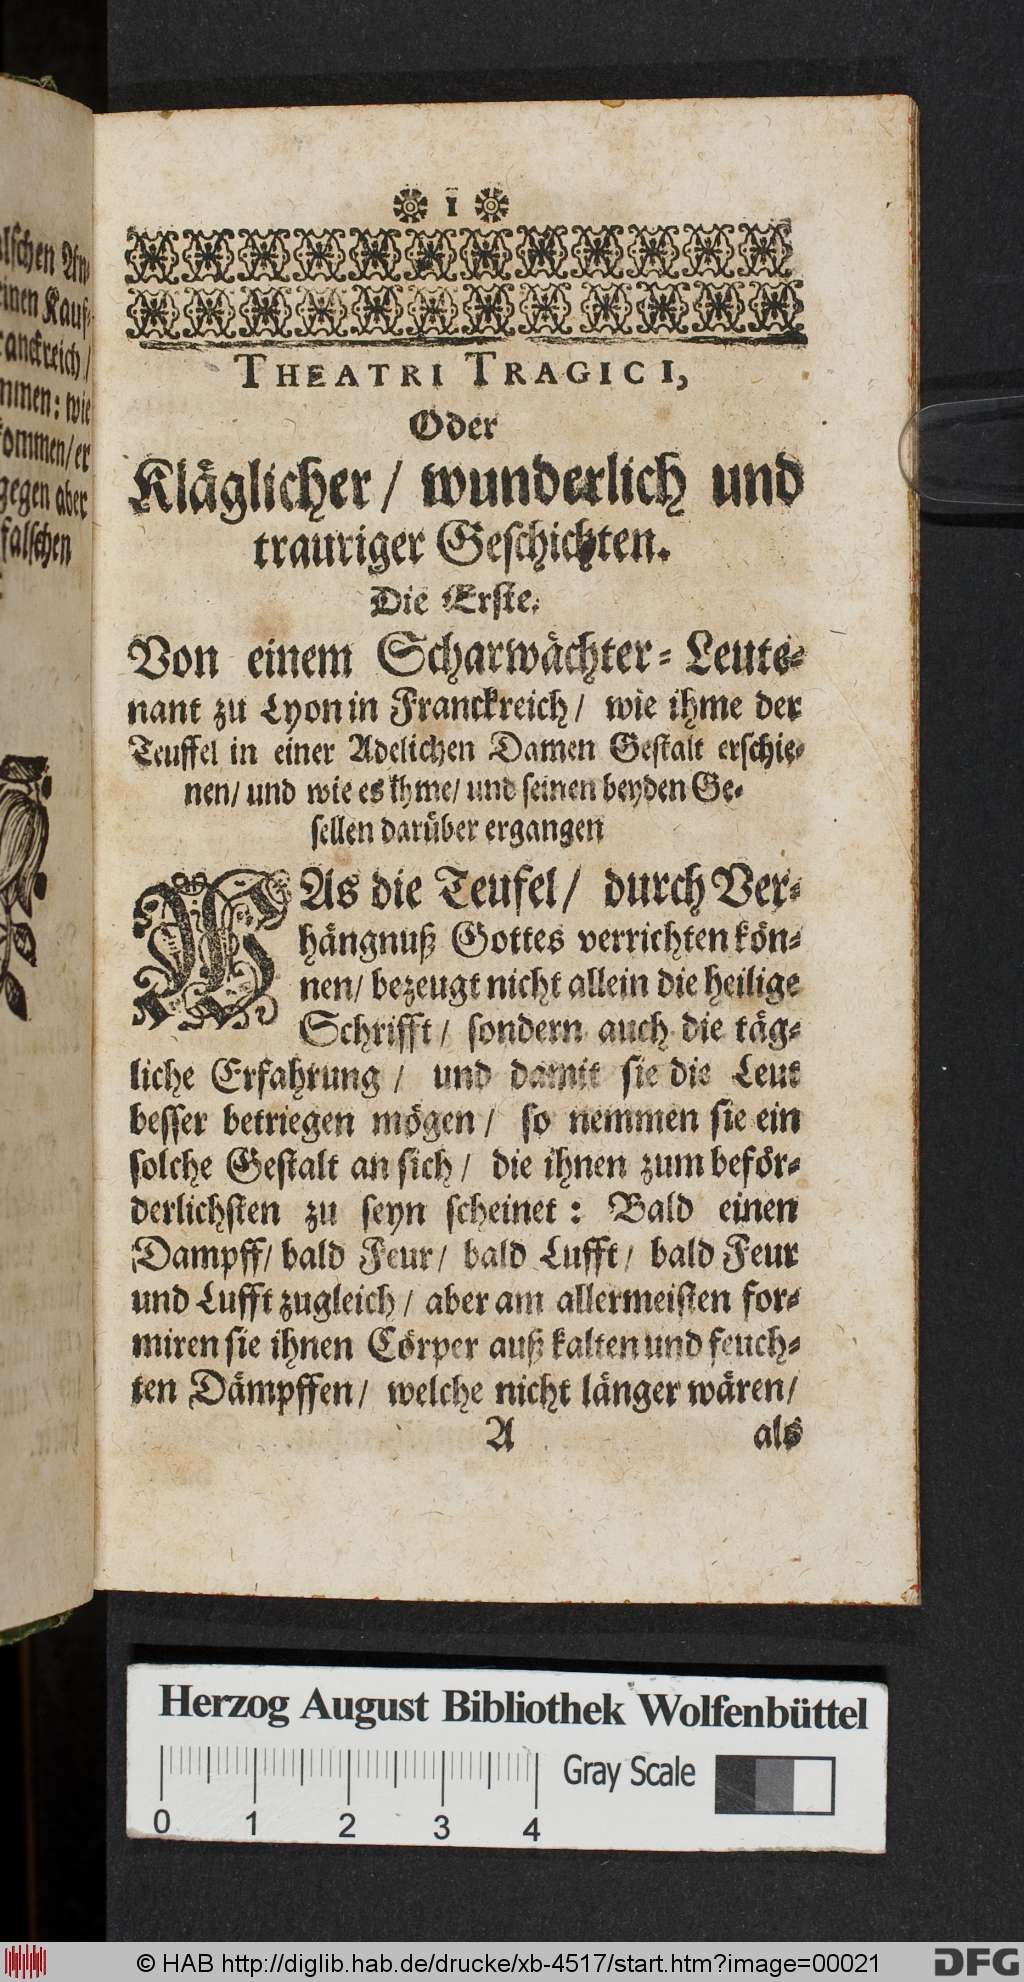 lschen An-
einen Kauf-
ranckreich /
mmen: wie
kommen / er
gegen aber
falschen
1
THEATRI TRAGICI,
Oder
Kläglicher / wunderlich und
trauriger Geschichten.
Die Erste.
Von einem Scharwächter-Leute-
nant zu Lyon in Franckreich / wie ihme der
Teuffel in einer Adelichen Damen Gestalt erschie-
nen / und wie es ihme / und seinen beyden Ge-
sellen darüber ergangen
WAs die Teufel / durch Ver-
hängnuß Gottes verrichten kön-
nen / bezeugt nicht allein die heilige
Schrifft / sondern auch die täg-
liche Erfahrung / und damit sie die Leut
besser betriegen mögen / so nemmen sie ein
solche Gestalt an sich / die ihnen zum beför-
derlichsten zu seyn scheinet: Bald einen
Dampff / bald Feur / bald Lufft / bald Feur
und Lufft zugleich / aber am allermeisten for-
miren sie ihnen Cörper auß kalten und feuch-
ten Dämpffen / welche nicht länger wären /
A als
Herzog August Bibliothek Wolfenbüttel
Gray Scale
0 1 2 3 4
© HAB http://diglib.hab.de/drucke/xb-4517/start.htm?image=00021
DFG